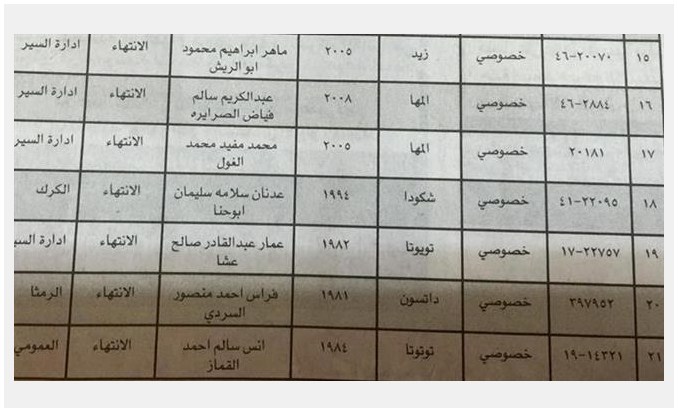 ١٥ ٤٦-٢٠٠٧٠ خصوصي زيد ٢٠٠٥ ماهر ابراهيم محمود الانتهاء ادارة السير
ابو الريش
١٦ ٤٦-٢٨٨٤ خصوصي المها ٢٠٠٨ عبدالكريم سالم الانتهاء ادارة السير
فياض الصرايره
١٧ ٢٠١٨١ خصوصي المها ٢٠٠٥ محمد مفيد محمد الانتهاء ادارة السير
الغول
١٨ ٤١-٢٢٠٩٥ خصوصي شكودا ١٩٩٤ عدنان سلامه سليمان الانتهاء الكرك
ابوحنا
١٩ ١٧-٢٢٧٥٧ خصوصي تويوتا ١٩٨٢ عمار عبدالقادر صالح الانتهاء ادارة السير
عشا
٢٠ ٣٩٧٩٥٢ خصوصي داتسون ١٩٨١ فراس احمد منصور الانتهاء الرمثا
السردي
٢١ ١٩-١٤٣٢١ خصوصي توتوتا ١٩٨٤ انس سالم احمد الانتهاء العمومي
القماز